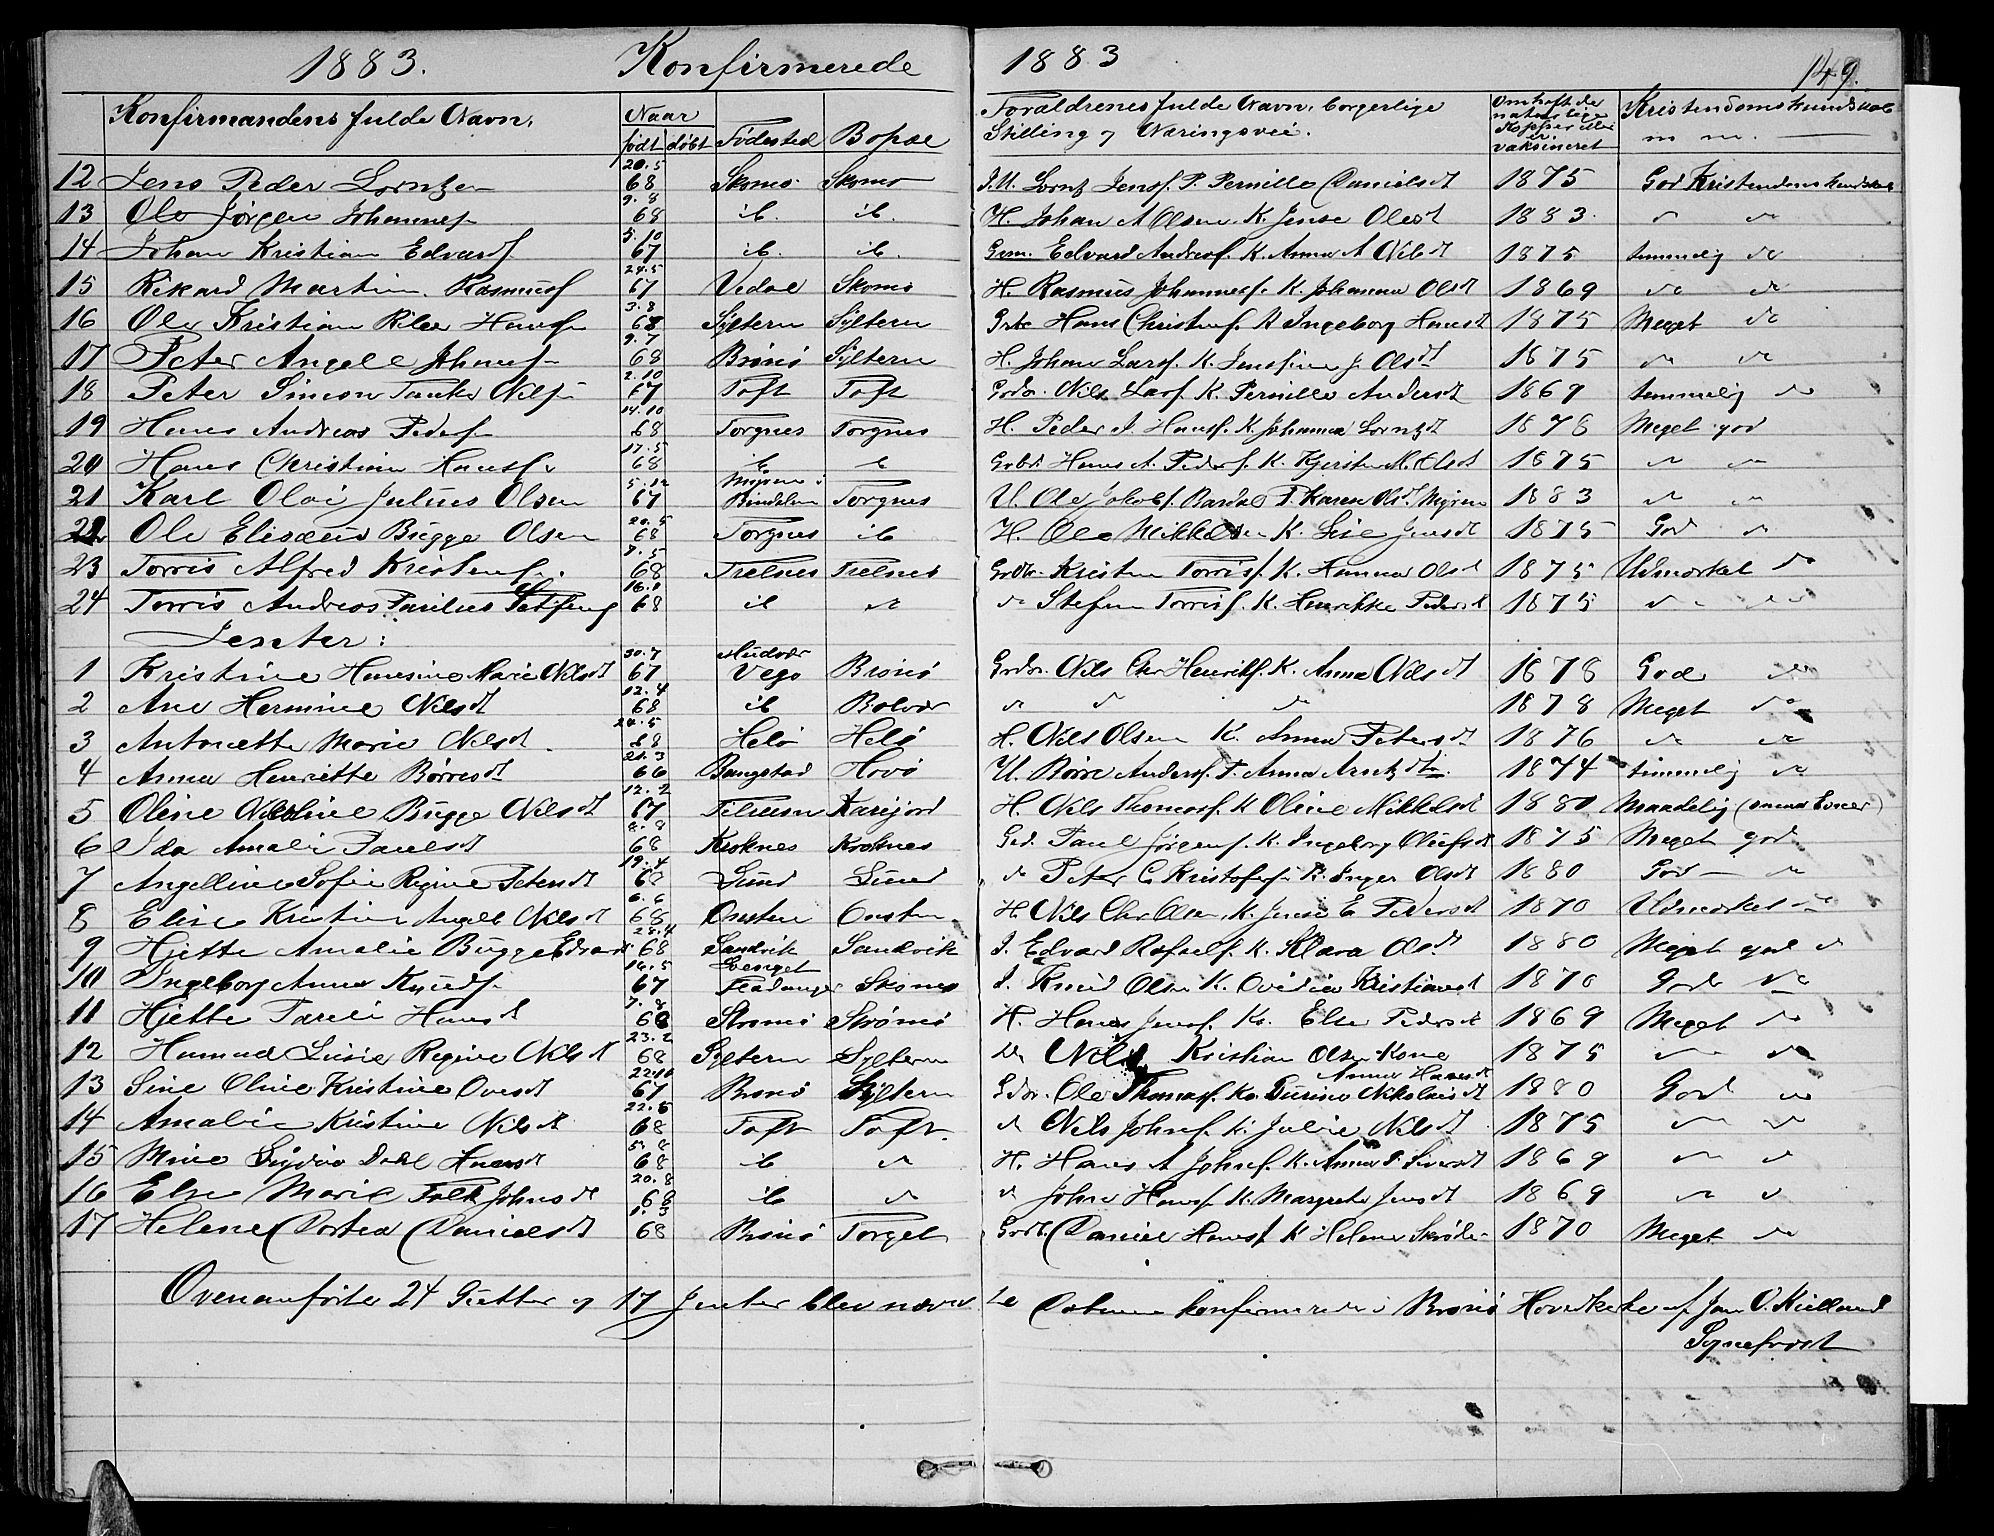 1883. Konfirmerede 1883 149.
Konfirmandens fulde Navn. Naar født døbt Fødested Bopæl Forældrenes fulde Navn, borgerlige Stilling og Næringsvei. Om haft de naturlige Kopper eller er vaksineret Kristendomskundskab m. m.
12 Jens Peder Lorntzen 20.5 68 Skomo Skomo I.U. Lorntz Jensf. P. Pernille Danielsdt 1875 God Kristendomskundskab
13 Ole Jørgen Johannesf 9.8 68 ib. ib. H. Johan A Olsen K. Jense Olesdt 1883
14 Johan Kristian Edvardsf 5.10 67 ib. ib. Gvm. Edvard Andresf. K. Anna A Nilsdt 1875 temmelig do
15 Rikard Martin Rasmusf 24.5 67 Vedal Skomo H. Rasmus Johannesf. K. Johanna Olsdt 1869 do do
16 Ole Kristian Hansf 3.8 68 Syltern Syltern Hans Christenf. K Ingeborg Hansdt 1875 Meget do
17 Peter Angell Johnsf 9.7 68 Brønø Syltern H. Johan Larsf. K. Jensine J. Olsdt 1875 do do
18 Peter Simon Tanke Nilsf 2.10 67 Toft Toft Gvdr. Nils Larsf K. Pernille Andersdt 1869 temmelig do
19 Hans Andreas Pedersf 14.10 68 Torgnes Torgnes H. Peder J. Hansf. K. Johanna Lorntzdt 1878 Meget god
20 Hans Christian Hansf 17.5 68 ib ib Hans A. Pedersf. K. Kjersten M. Olsdt 1875 do do
21 Karl Olai Julius Olsen 5.12 67 Bindalen Torgnes U. Ole Jakobsf. P. Karen Olsdt 1883 do do
22 Ole Elisæus Bugge Olsen 20.5 68 Torgnes ib H. Ole Mikkelsen K. Lise Jensdt 1875 God do
23 Torris Alfred Kristensf. 7.5 68 Trælnes Trælnes Kristen Torrisf. K. Hanna Olsdt 1875 Udmærket do
24 Torris Andreas 68 ib do do Stefen Torrisf. K. Henrikke Pedersdt 1875 do do
Jenter:
1 Kristine Hansine Marie Nilsdt 30.7 67 Vego Brønø Gvdr. Nils Chr Henriksf. K. Anna Nilsdt 1878 God do
2 Ane Hermine Nilsdt 12.4 68 ib do do do 1878 Meget do
3 Antonette Marie Nilsdt 24.5 68 Helø Helø H. Nils Olsen K. Anna Petersdt 1876 do do
4 Anna Henriette Børresdt 21.3 66 Bangstad Hovø U. Børre Andersf. P. Anna Arntzdt 1874 temmelig do
5 Oline Bugge Nilsdt 12.2 67 Tilrem H. Nils Thomasf. K Oline Mikkelsdt 1880 Maadelig (smaa Evner)
6 Ida Amalie Paulsdt 8.8 68 Kroknes Kroknes Paul Jørgensf. K. Ingeborg Olufsdt 1875 Meget god
7 Angelline Sofie Regine Petersdt 19.4 68 Sund Sund do Peter C Kristofersf K. Inger Olsdt 1880 God do
8 Elise Kristine Angell Nilsdt 6.6 68 Onsten Onsten H. Nils Chr Olsen K. Jense E Pedersdt 1870 Udmærket do
9 Hjette Amalie Bugge Edvardsdt 28.4 68 Sandvik Sandvik I. Edvard Rafaelf. K. Klara Olsdt 1880 Meget god do
10 Ingeborg Anna Knudsf 16.5 67 Fladanger Skomo I. Knud Olsen K. Ovidia Kristiansdt 1870 God do
11 Hjette Hansdt 7.8 68 Strømø Strømø H. Hans Jensf. K. Else Pedersdt 1869 Meget do
12 Regine Nilsdt 23.2 68 Syltern Syltern Do Nils Kristian Olsen Kone Anna Hansdt 1875 do do
13 Sine Oline Kristine Olesdt 22.10 67 Brønø Syltern Gdbr. Ole Thomasf. K. Gurine Nikolaisdt 1880 God do
14 Amalie Kristine Nilsdt 22.5 68 Toft Toft. do Nils Johnsf. K. Julie Nilsdt 1875 do do
15 Mine Dahl Hansdt 5.8 68 ib do H. Hans A Johnsf. K. Anna P. Siversdt 1869 do do
16 Else Marie Falk Johnsdt 20.8 68 ib do do John Hansf. K. Margrete Jensdt 1869 do do
17 Helene Dortea Danielsdt 1.3 68 Brønø Torget Daniel Hansf. K Helene Skrøder 1870 Meget do
Ovenanførte 24 Gutter og 17 Jenter blev nævnte Datum konfirmerede i Brønø Hovedkirke af Jan O. Kielland
Sognepræst